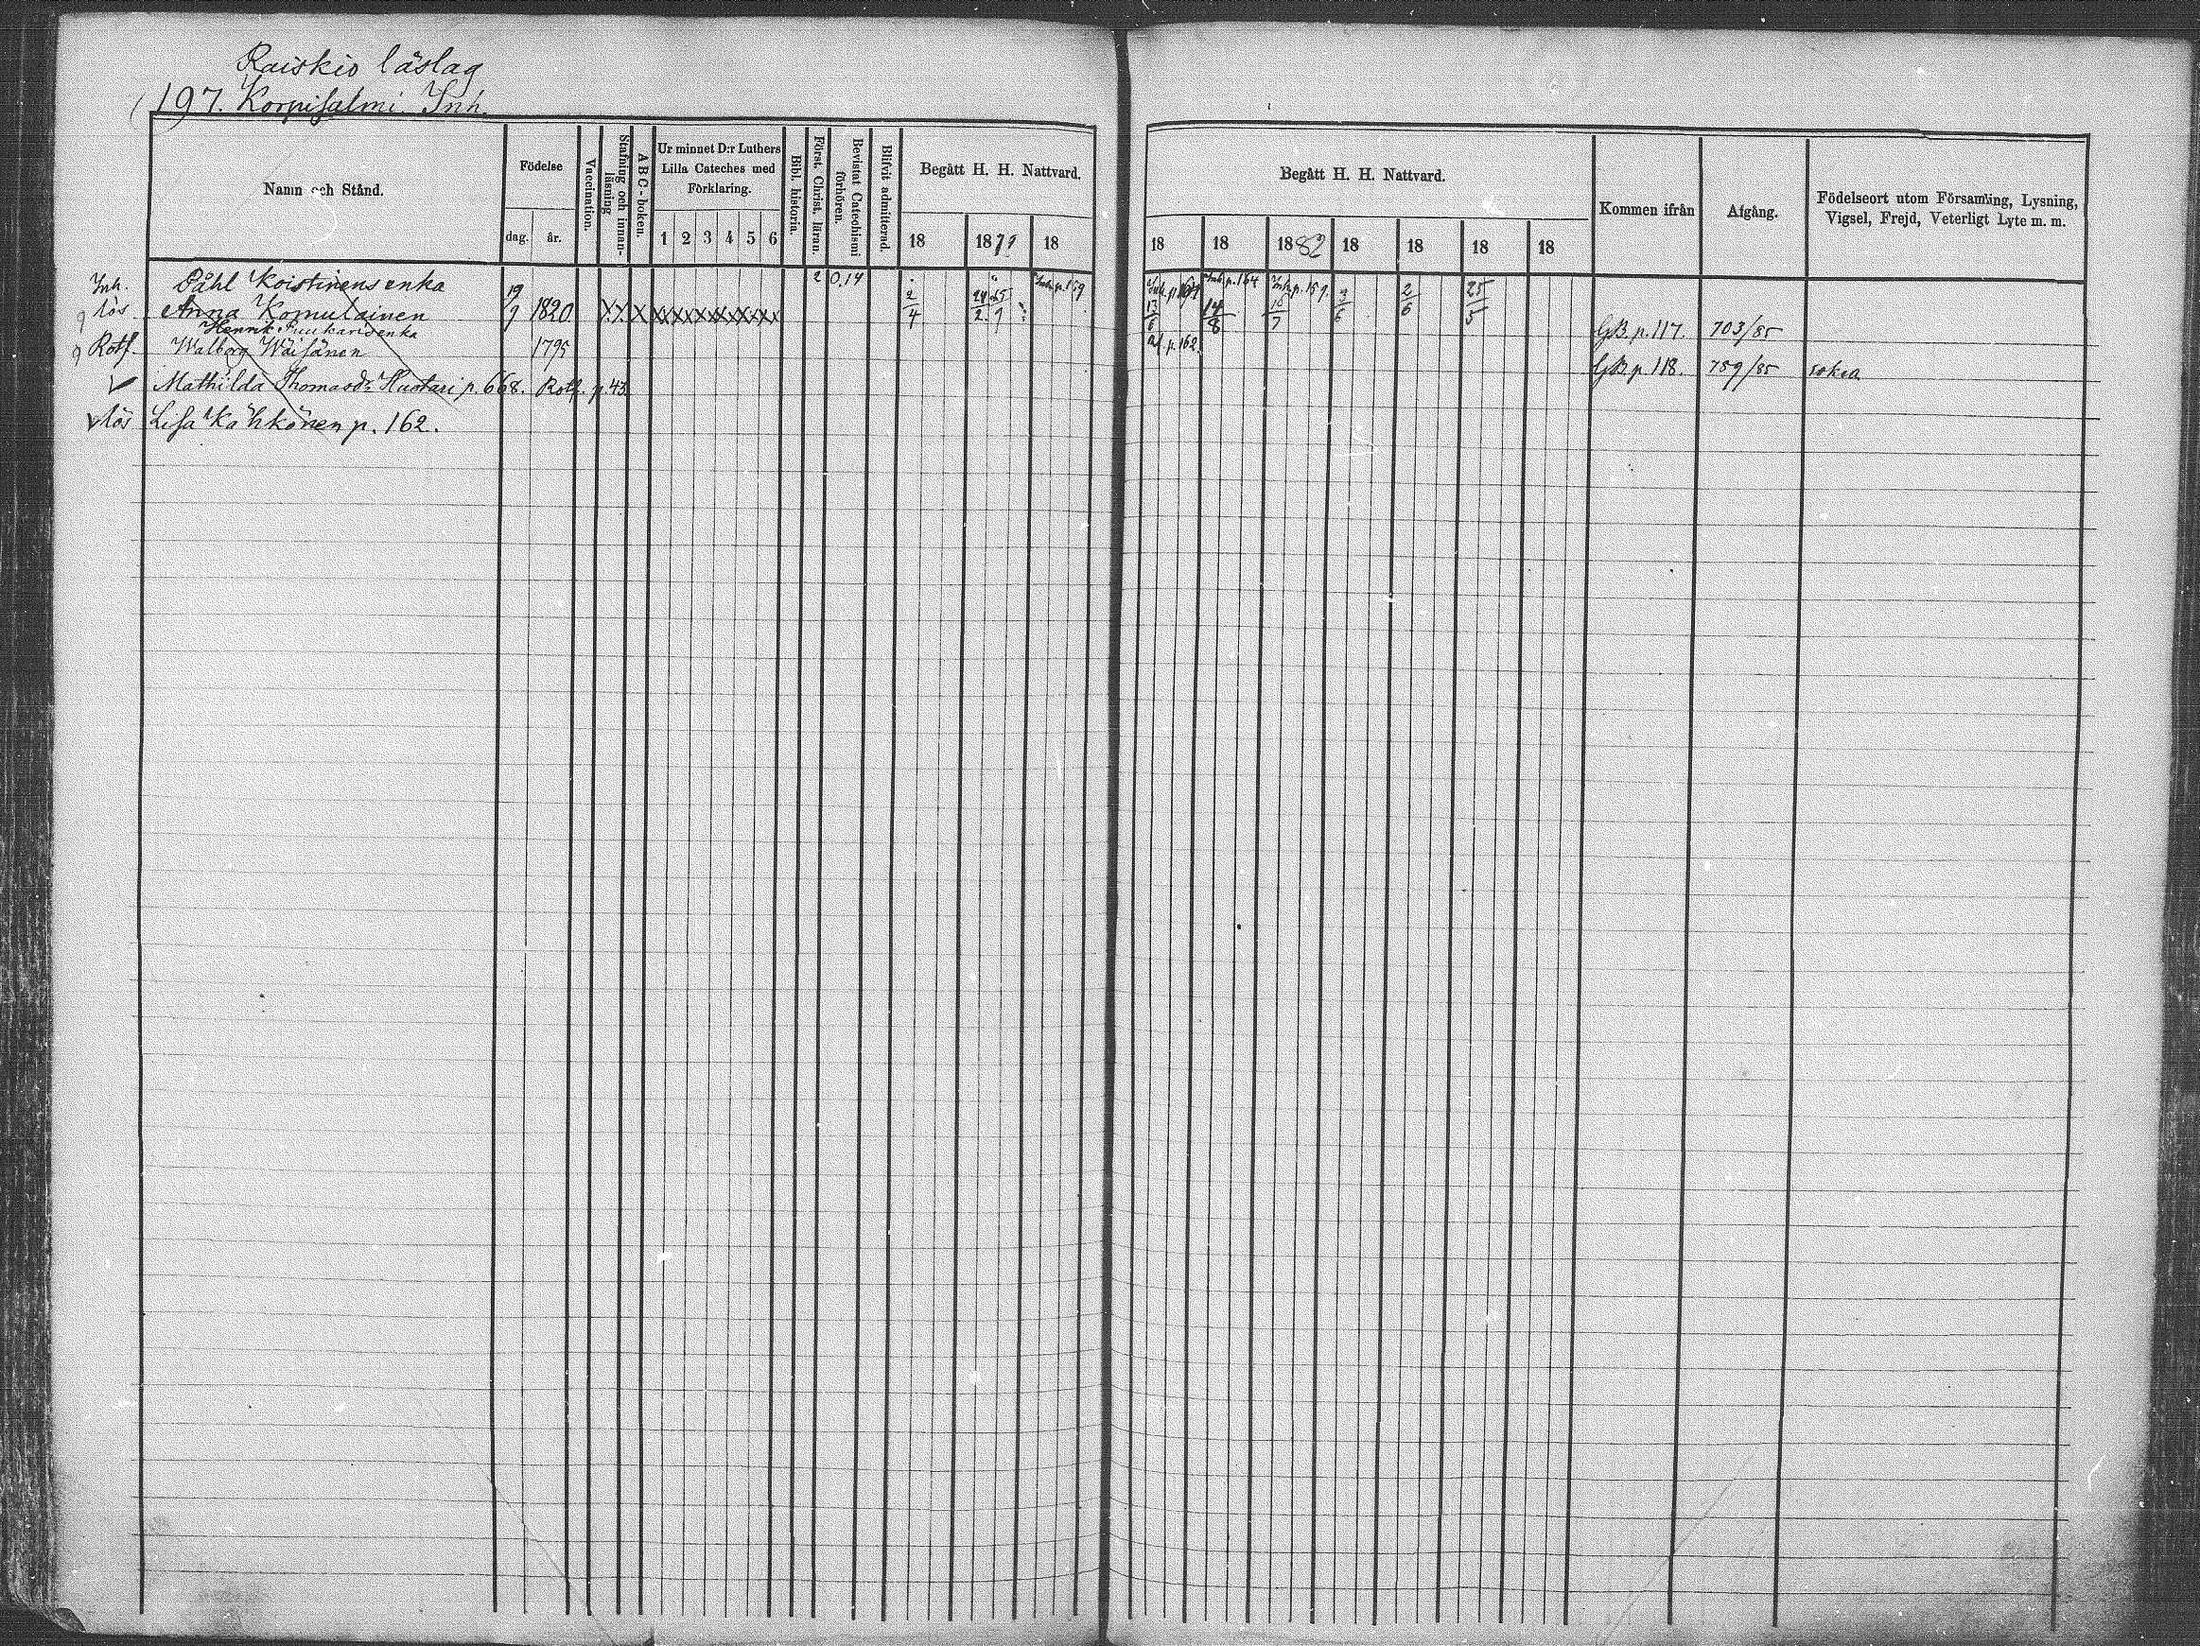 Raiskio läslag
197. Korpisalmi Inh.
Namn och Stånd.
Födelse
dag. år.
Vaccination.
Stafning och innanläsning
A B C-boken.
Ur minnet D:r Luthers Lilla Cateches med Förklaring.
1 2 3 4 5 6
Bibl. historia.
Först. Christ. läran.
Bevistat Catechismi förhören.
Blifvit admitterad.
Begått H. H. Nattvard.
18 1879 18
Begått H. H. Nattvard.
18 18 1882 18 18 18 18
Kommen ifrån
Afgång.
Födelseort utom Församling, Lysning, Vigsel, Frejd, Veterligt Lyte m. m.
Inh. Påhl Koistinens enka 2 0,14 Inh. p. 159 Inh. p. 164 Inh. p. 159.
lös Anna Komulainen 19/9 1820 X X X X X X X X X 2/4 13/6 14/8 2/6 25/5 GB. p. 117. 703/85
Henrik enka
Rotf. Walborg Wäisänen 1795 af p. 162. GB. p. 118. 789/85 sokea
Mathilda Thomasd:r Huotari p. 668. Rotf. p. 43.
lös Lisa Kähkönen p. 162.